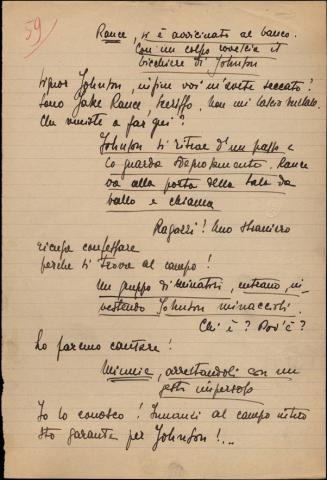 59
Rance, si è avvicinato al banco.
Con un colpo rovescia il
bicchiere di Johnson
Signor Johnson, infine voi m'avete seccato!
Sono Jake Rance, sceriffo. Non mi lascio burlare.
Che veniste a far qui?
Johnson si ritrae d'un passo e
lo guarda sdegnosamente. Rance
va alla porta della sala da
ballo e chiama
Ragazzi! Uno straniero
ricusa confessare
perché si trova al campo!
Un gruppo di minatori, entrano, in-
vestendo Johnson minacciosi.
Chi è? Dov'è?
Lo faremo cantare!
Minnie, arrestandoli con un
gesto imperioso
Io lo conosco! Innanzi al campo intero
sto garante per Johnson!...